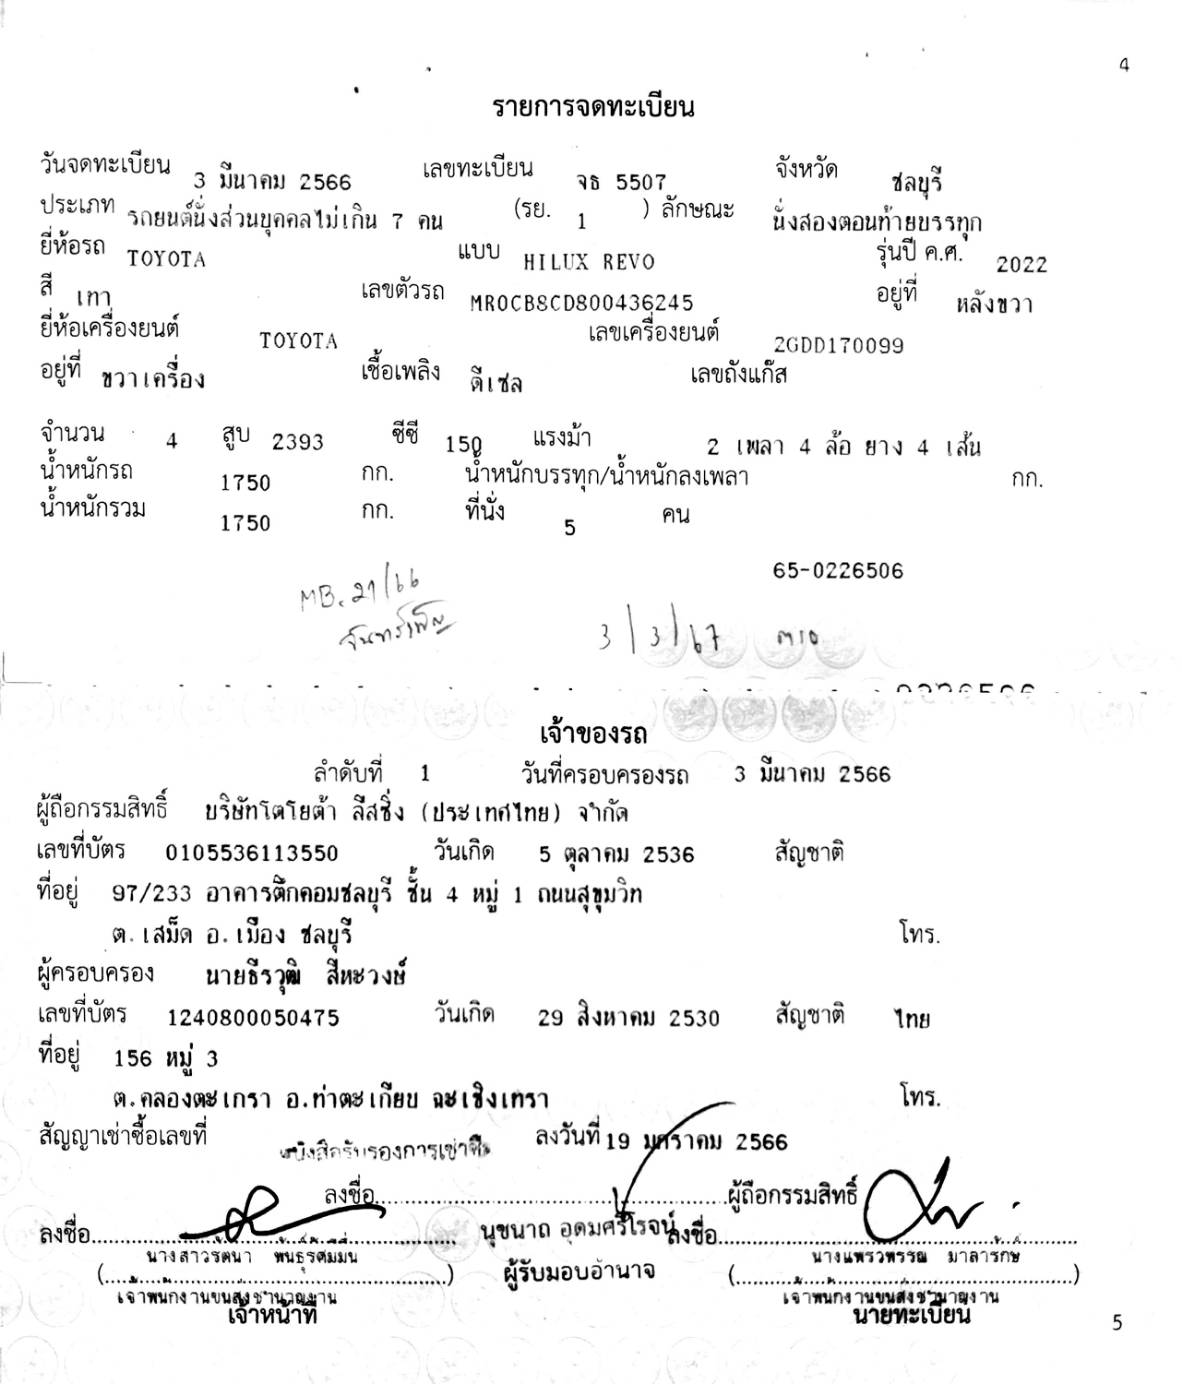 4
รายการจดทะเบียน
วันจดทะเบียน 3 มีนาคม 2566 เลขทะเบียน จธ 5507 จังหวัด ชลบุรี
ประเภท รถยนต์นั่งส่วนบุคคลไม่เกิน 7 คน (รย. 1 ) ลักษณะ นั่งสองตอนท้ายบรรทุก
ยี่ห้อรถ TOYOTA แบบ HILUX REVO รุ่นปี ค.ศ. 2022
สี เทา เลขตัวรถ MR0CB8CD800436245 อยู่ที่ หลังขวา
ยี่ห้อเครื่องยนต์ TOYOTA เลขเครื่องยนต์ 2GDD170099
อยู่ที่ ขวาเครื่อง เชื้อเพลิง ดีเซล เลขถังแก๊ส
จำนวน 4 สูบ 2393 ซีซี 150 แรงม้า 2 เพลา 4 ล้อ ยาง 4 เส้น
น้ำหนักรถ 1750 กก. น้ำหนักบรรทุก/น้ำหนักลงเพลา กก.
น้ำหนักรวม 1750 กก. ที่นั่ง 5 คน
65-0226506
MB. 21/66
จันทร์เพ็ญ
3/3/67
เจ้าของรถ
ลำดับที่ 1 วันที่ครอบครองรถ 3 มีนาคม 2566
ผู้ถือกรรมสิทธิ์ บริษัทโตโยต้า ลีสซิ่ง (ประเทศไทย) จำกัด
เลขที่บัตร 0105536113550 วันเกิด 5 ตุลาคม 2536 สัญชาติ
ที่อยู่ 97/233 อาคารตึกคอมชลบุรี ชั้น 4 หมู่ 1 ถนนสุขุมวิท
ต.เสม็ด อ.เมือง ชลบุรี โทร.
ผู้ครอบครอง นายธีรวุฒิ สีหะวงษ์
เลขที่บัตร 1240800050475 วันเกิด 29 สิงหาคม 2530 สัญชาติ ไทย
ที่อยู่ 156 หมู่ 3
ต.คลองตะเกรา อ.ท่าตะเกียบ ฉะเชิงเทรา โทร.
สัญญาเช่าซื้อเลขที่ หนังสือรับรองการเช่าซื้อ ลงวันที่ 19 มกราคม 2566
ลงชื่อ....................ผู้ถือกรรมสิทธิ์
ลงชื่อ.................... นุชนาถ อุดมศรีโรจน์ ลงชื่อ....................
นางสาวรตนา พันธุรัศมมน ผู้รับมอบอำนาจ นางแพรวพรรณ มาลารักษ์
(....................) (....................)
เจ้าพนักงานขนส่งชำนาญงาน เจ้าพนักงานขนส่งชำนาญงาน
เจ้าหน้าที่ นายทะเบียน
5